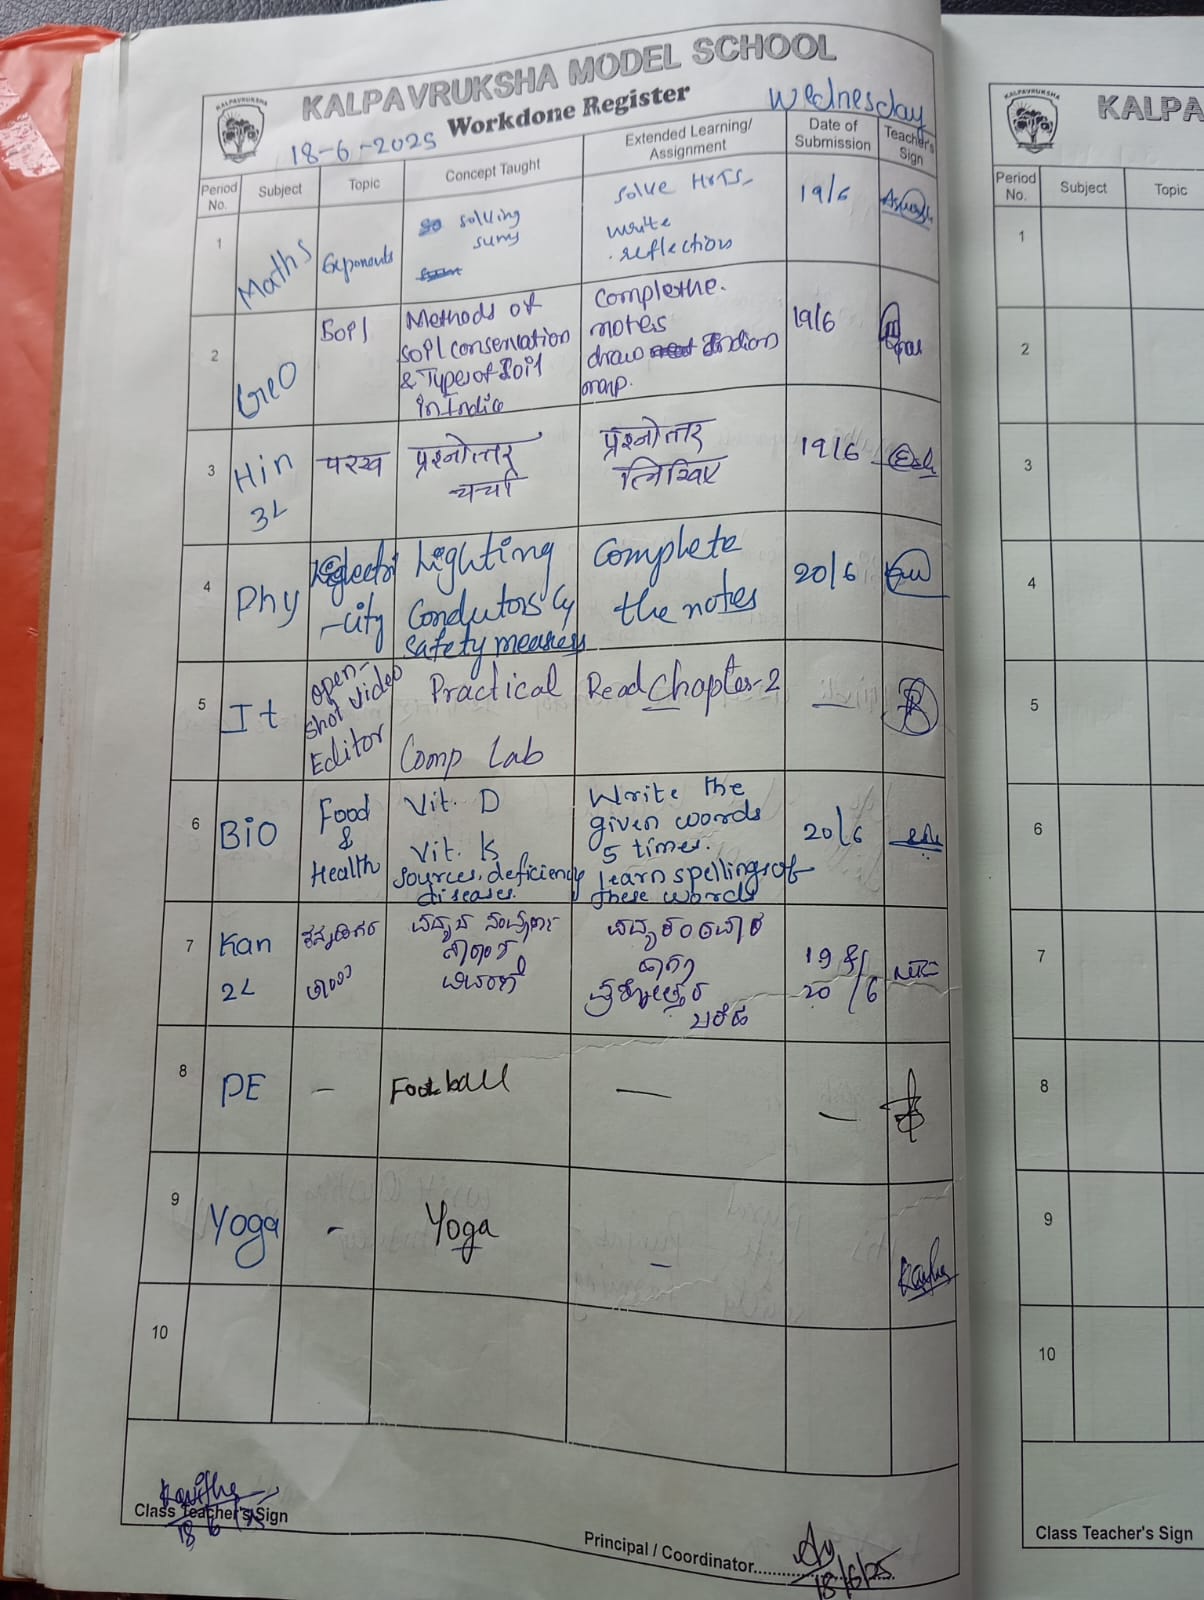 KALPAVRUKSHA MODEL SCHOOL
KALPAVRUKSHA
Workdone Register
Wednesday
18-6-2025
Period No. Subject Topic Concept Taught Extended Learning/ Assignment Date of Submission Teacher's Sign
1 Maths Exponents solving sums solve HOTS write reflection 19/6
2 Geo Soil Methods of Soil conservation & Types of Soil in India Complete the notes draw Indian map. 19/6
3 Hin 3L परख प्रश्नोत्तर चर्चा प्रश्नोत्तर लिखिए 19/6
4 Phy electri-city Lighting Condutors & safety measures Complete the notes 20/6
5 It Open-shot Video Editor Practical Comp Lab Read Chapter-2 —
6 BiO Food & Health Vit. D Vit. K sources, deficiency diseases. Write the given words 5 times. learn spellings of these words 20/6
7 Kan 2L 19 & 20/6
8 PE — Football — —
9 Yoga - Yoga -
10
Kavitha
Class Teacher's Sign
18/6/25
Principal / Coordinator
18/6/25
KALPA
KALPAVRUKSHA
Period No. Subject Topic
1
2
3
4
5
6
7
8
9
10
Class Teacher's Sign